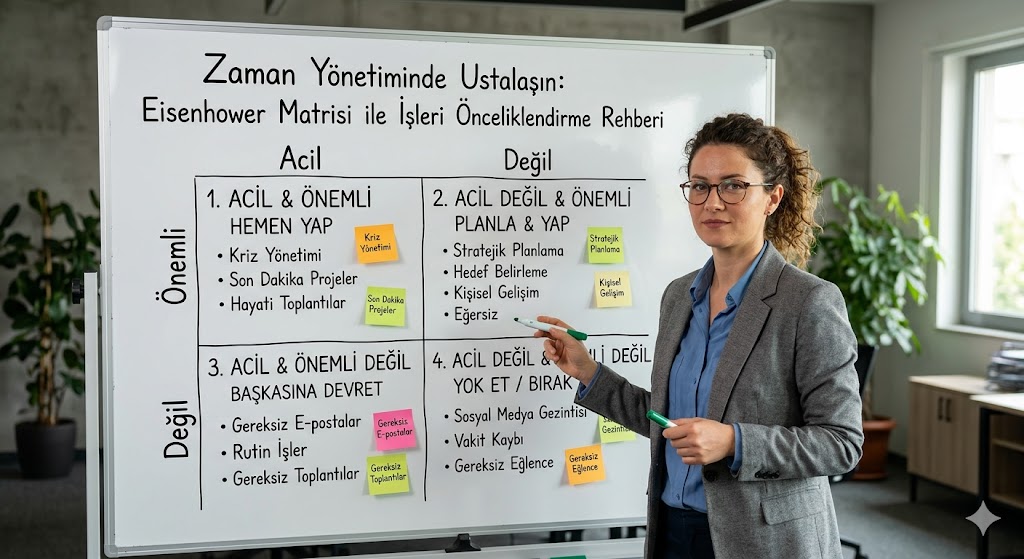 Zaman Yönetiminde Ustalaşın:
Eisenhower Matrisi ile İşleri Önceliklendirme Rehberi
Acil
Değil
Önemli
1. ACİL & ÖNEMLİ
HEMEN YAP
• Kriz Yönetimi
• Son Dakika Projeler
• Hayati Toplantılar
Kriz
Yönetimi
Son Dakika
Projeler
2. ACİL DEĞİL & ÖNEMLİ
PLANLA & YAP
• Stratejik Planlama
• Hedef Belirleme
• Kişisel Gelişim
• Eğersiz
Stratejik
Planlama
Kişisel
Gelişim
Değil
3. ACİL & ÖNEMLİ DEĞİL
BAŞKASINA DEVRET
• Gereksiz E-postalar
• Rutin İşler
• Gereksiz Toplantılar
Gereksis
E-postalar
Gereksiz
Toplantılar
4. ACİL DEĞİL & DEĞİL
YOK ET / BIRAK
• Sosyal Medya Gezintisi
• Vakit Kaybı
• Gereksiz Eğlence
Gezintisi
Gereksiz
Eğlence